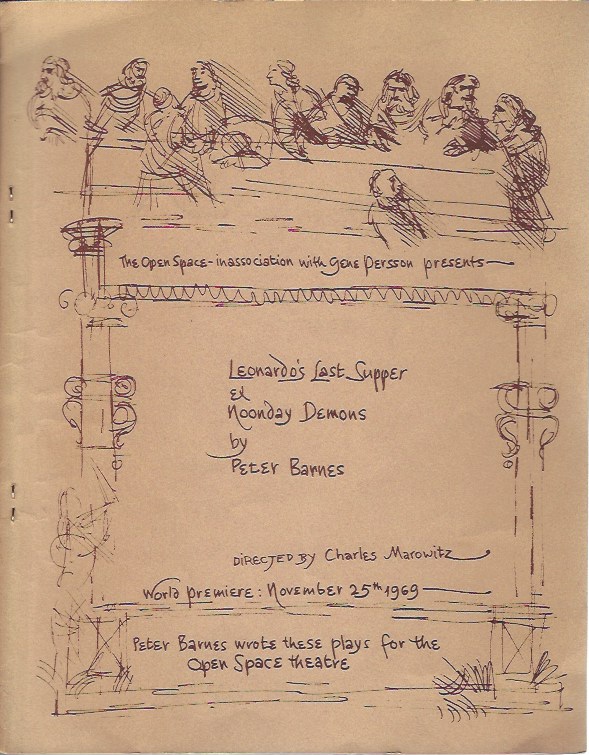 The Open Space - in association with Gene Persson presents
Leonardo's Last Supper
&
Noonday Demons
by
Peter Barnes
DIRECTED BY Charles Marowitz
World premiere: November 25th 1969
Peter Barnes wrote these plays for the
Open Space theatre